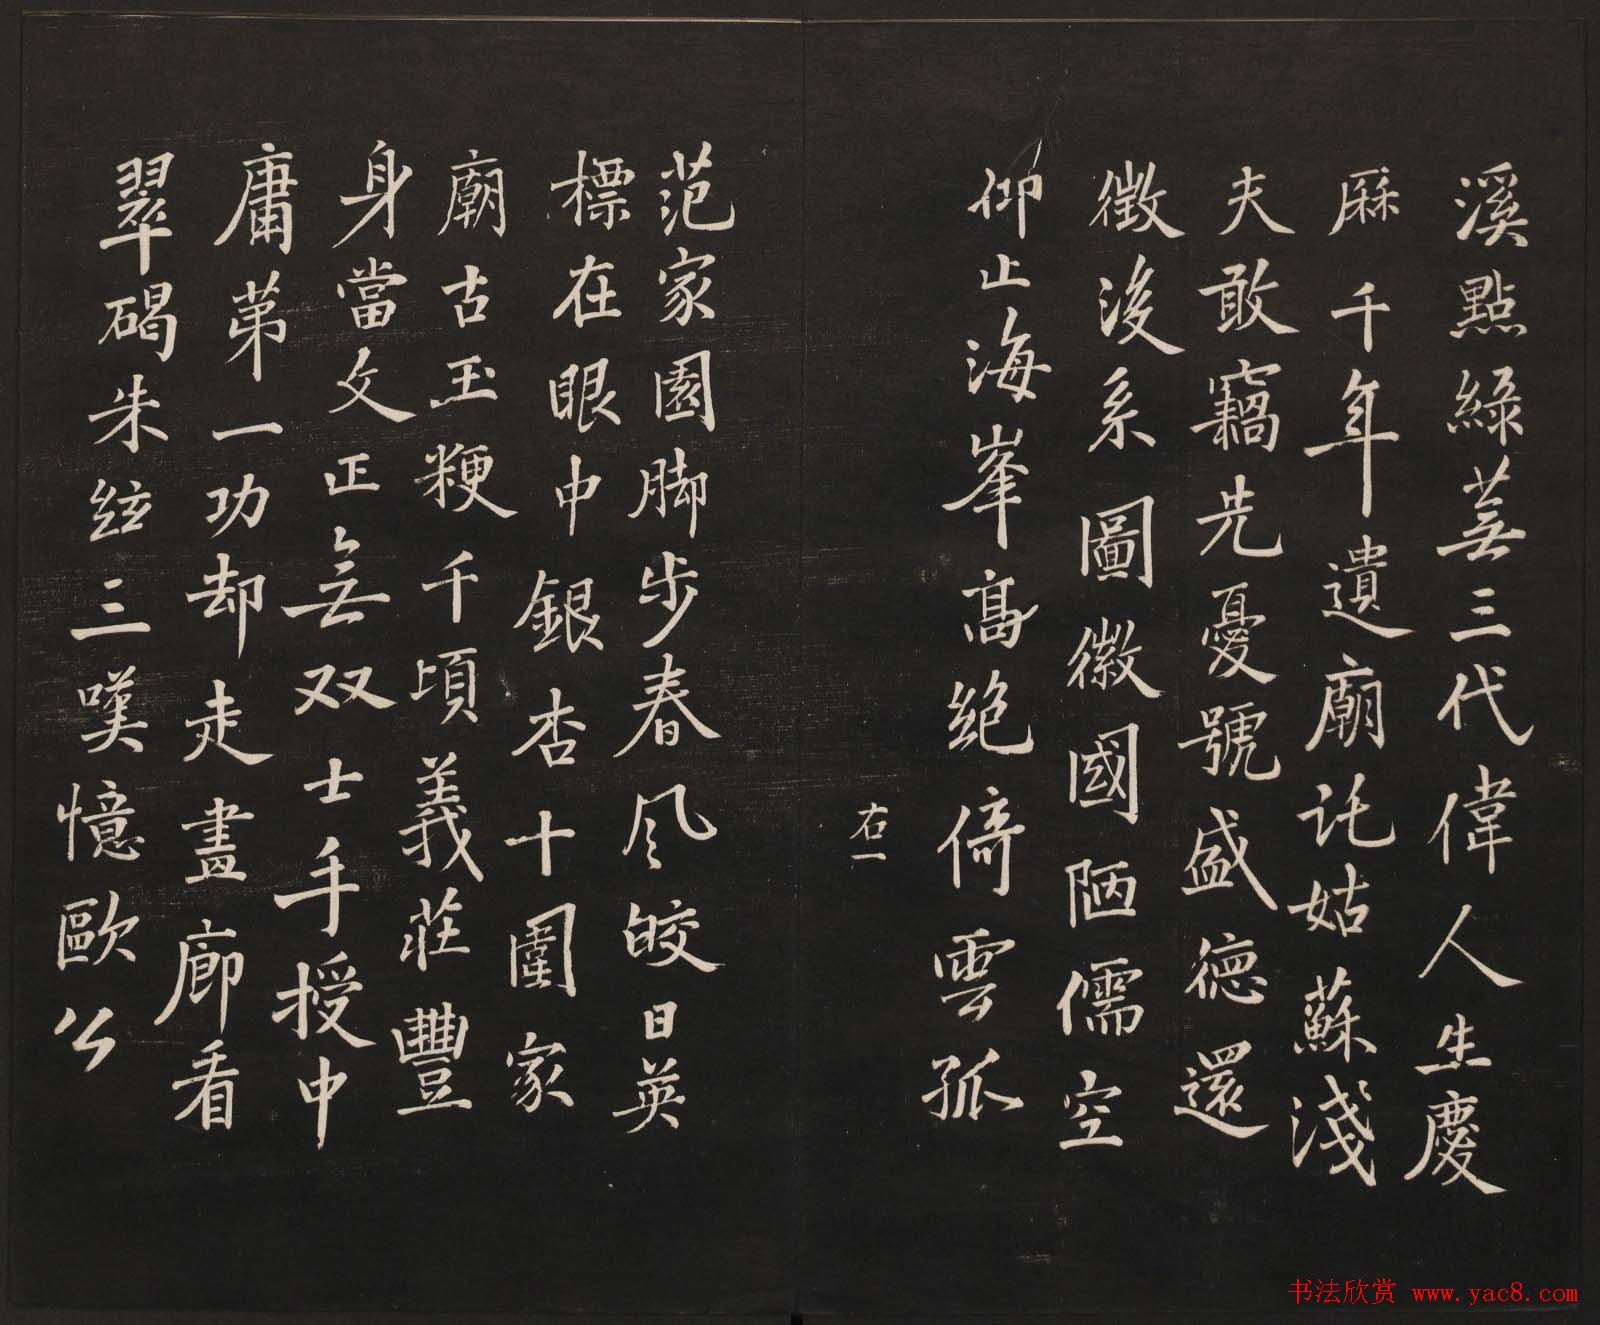 溪點綠蕪三代偉人生慶
厤千年遺廟託姑蘇淺
夫敢竊先憂號盛德還
徵後系圖徽國陋儒空
仰止海峯高絕倚雲孤
右一
范家園脚步春风皎日英
標在眼中銀杏十圍家
廟古玉粳千頃義莊豐
身當文正無双士手授中
庸苐一功却走畫廊看
翠碣朱絃三嘆憶歐公
书法欣赏 www.yac8.com